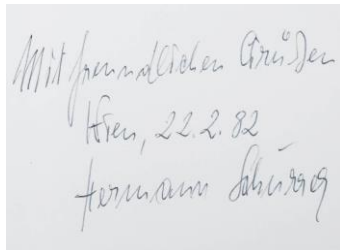 Mit freundlichen Grüßen
Wien, 22.2.82
Hermann Schürrer